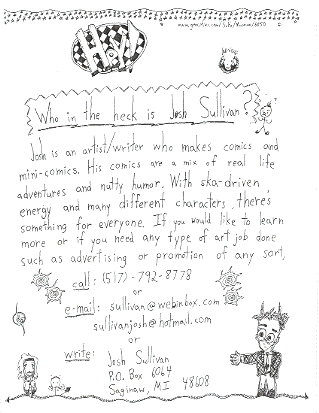 Who in the heck is Josh Sullivan?
Josh is an artist/writer who makes comics and
mini-comics. His comics are a mix of real life
adventures and nutty humor. With ska-driven
energy and many different characters, there's
something for everyone. If you would like to learn
more or if you need any type of art job done
such as advertising or promotion of any sort,
call: (517)-792-8778
or
e-mail: sullivan@webinbox.com
sullivanjosh@hotmail.com
or
write: Josh Sullivan
P.O. Box 6064
Saginaw, MI 48608